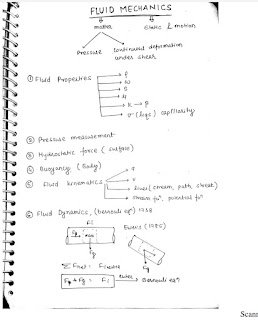 FLUID MECHANICS
matter
Static & motion
Pressure
Continual deformation
under shear
① Fluid Properties
K → β
σ (liqs) capillarity
② Pressure measurement
③ Hydrostatic force (surface)
④ Buoyancy (Body)
⑤ Fluid kinematics
v
a
lines (stream, path, streak)
stream fuⁿ, potential fuⁿ
⑥ Fluid Dynamics, (bernouli eqⁿ) 1738
Fp
mass
Fg
Σ Fnet = Finertia
Fp + Fg = Fi
Euler
Bernouli eqⁿ
Scann